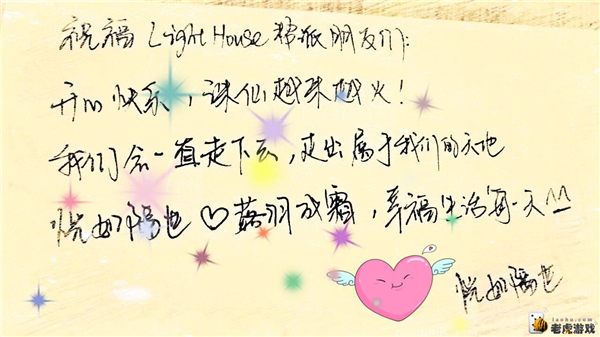 祝福 LightHouse 朋友们:
开心快乐，诛仙越来越火！
我们会一直走下去，走出属于我们的天地
恍如隔世♡落羽成霜，幸福生活每一天^^
恍如隔世
laohu.com
老虎游戏